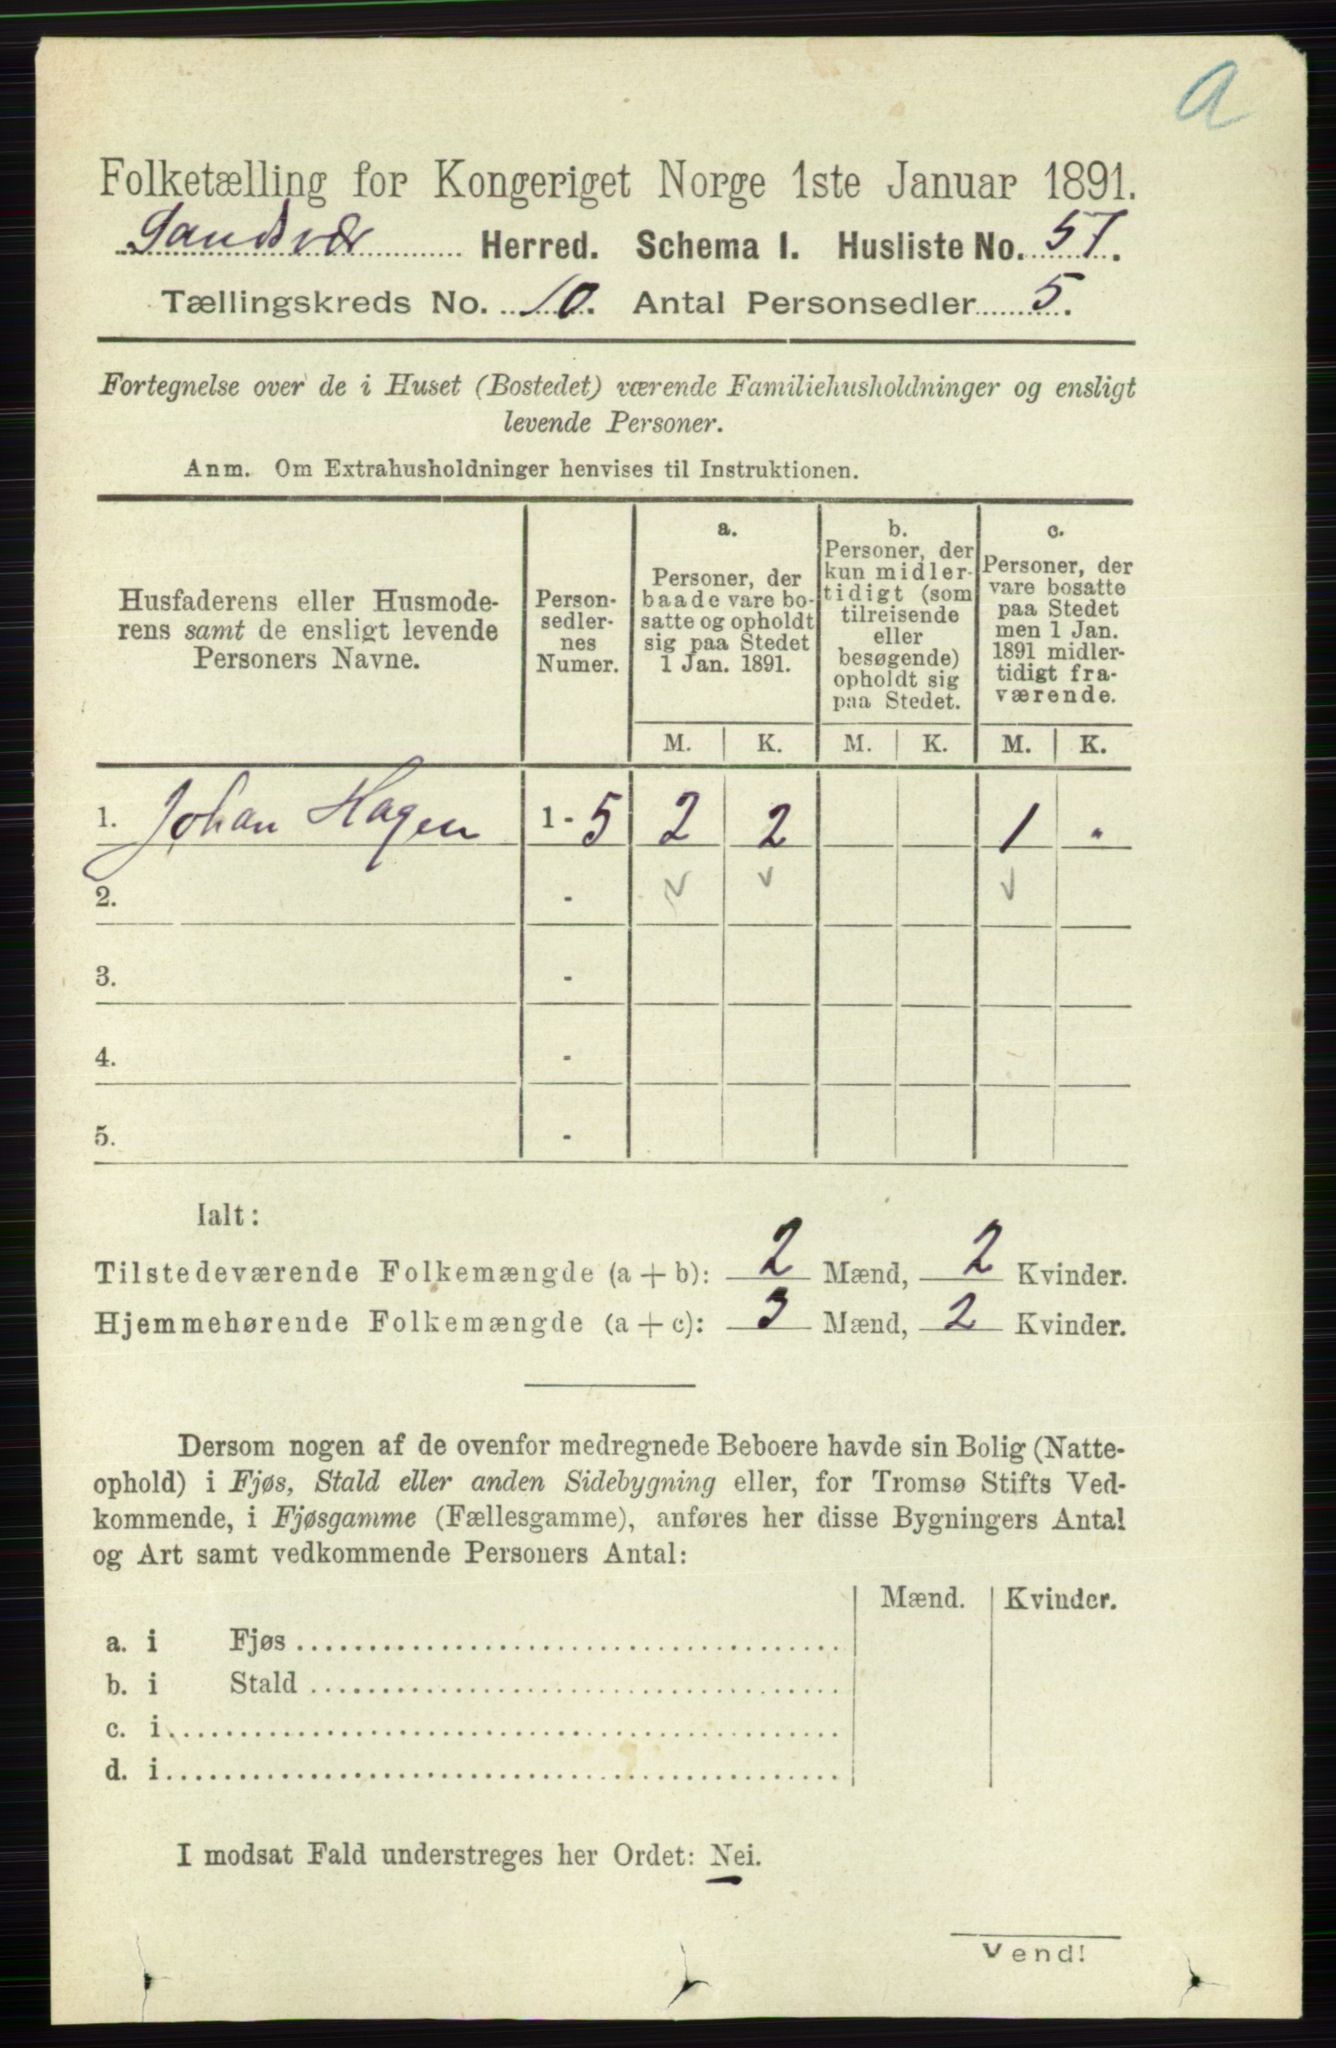 a
Folketælling for Kongeriget Norge 1ste Januar 1891.
Sandsvær Herred. Schema I. Husliste No. 57.
Tællingskreds No. 10. Antal Personsedler 5.
Fortegnelse over de i Huset (Bostedet) værende Familiehusholdninger og ensligt
levende Personer.
Anm. Om Extrahusholdninger henvises til Instruktionen.
Husfaderens eller Husmode-
rens samt de ensligt levende
Personers Navne.
Person-
sedler-
nes
Numer.
a.
Personer, der
baade vare bo-
satte og opholdt
sig paa Stedet
1 Jan. 1891.
b.
Personer, der
kun midler-
tidigt (som
tilreisende
eller
besøgende)
opholdt sig
paa Stedet.
c.
Personer, der
vare bosatte
paa Stedet
men 1 Jan.
1891 midler-
tidigt fra-
værende.
M. K. M. K. M. K.
1. Johan Hagen 1 - 5 2 2 1 "
2. -
3. -
4. -
5. -
Ialt:
Tilstedeværende Folkemængde (a + b): 2 Mænd, 2 Kvinder.
Hjemmehørende Folkemængde (a + c): 3 Mænd, 2 Kvinder.
Dersom nogen af de ovenfor medregnede Beboere havde sin Bolig (Natte-
ophold) i Fjøs, Stald eller anden Sidebygning eller, for Tromsø Stifts Ved-
kommende, i Fjøsgamme (Fællesgamme), anføres her disse Bygningers Antal
og Art samt vedkommende Personers Antal:
Mænd. Kvinder.
a. i Fjøs
b. i Stald
c. i
d. i
I modsat Fald understreges her Ordet: Nei.
Vend!